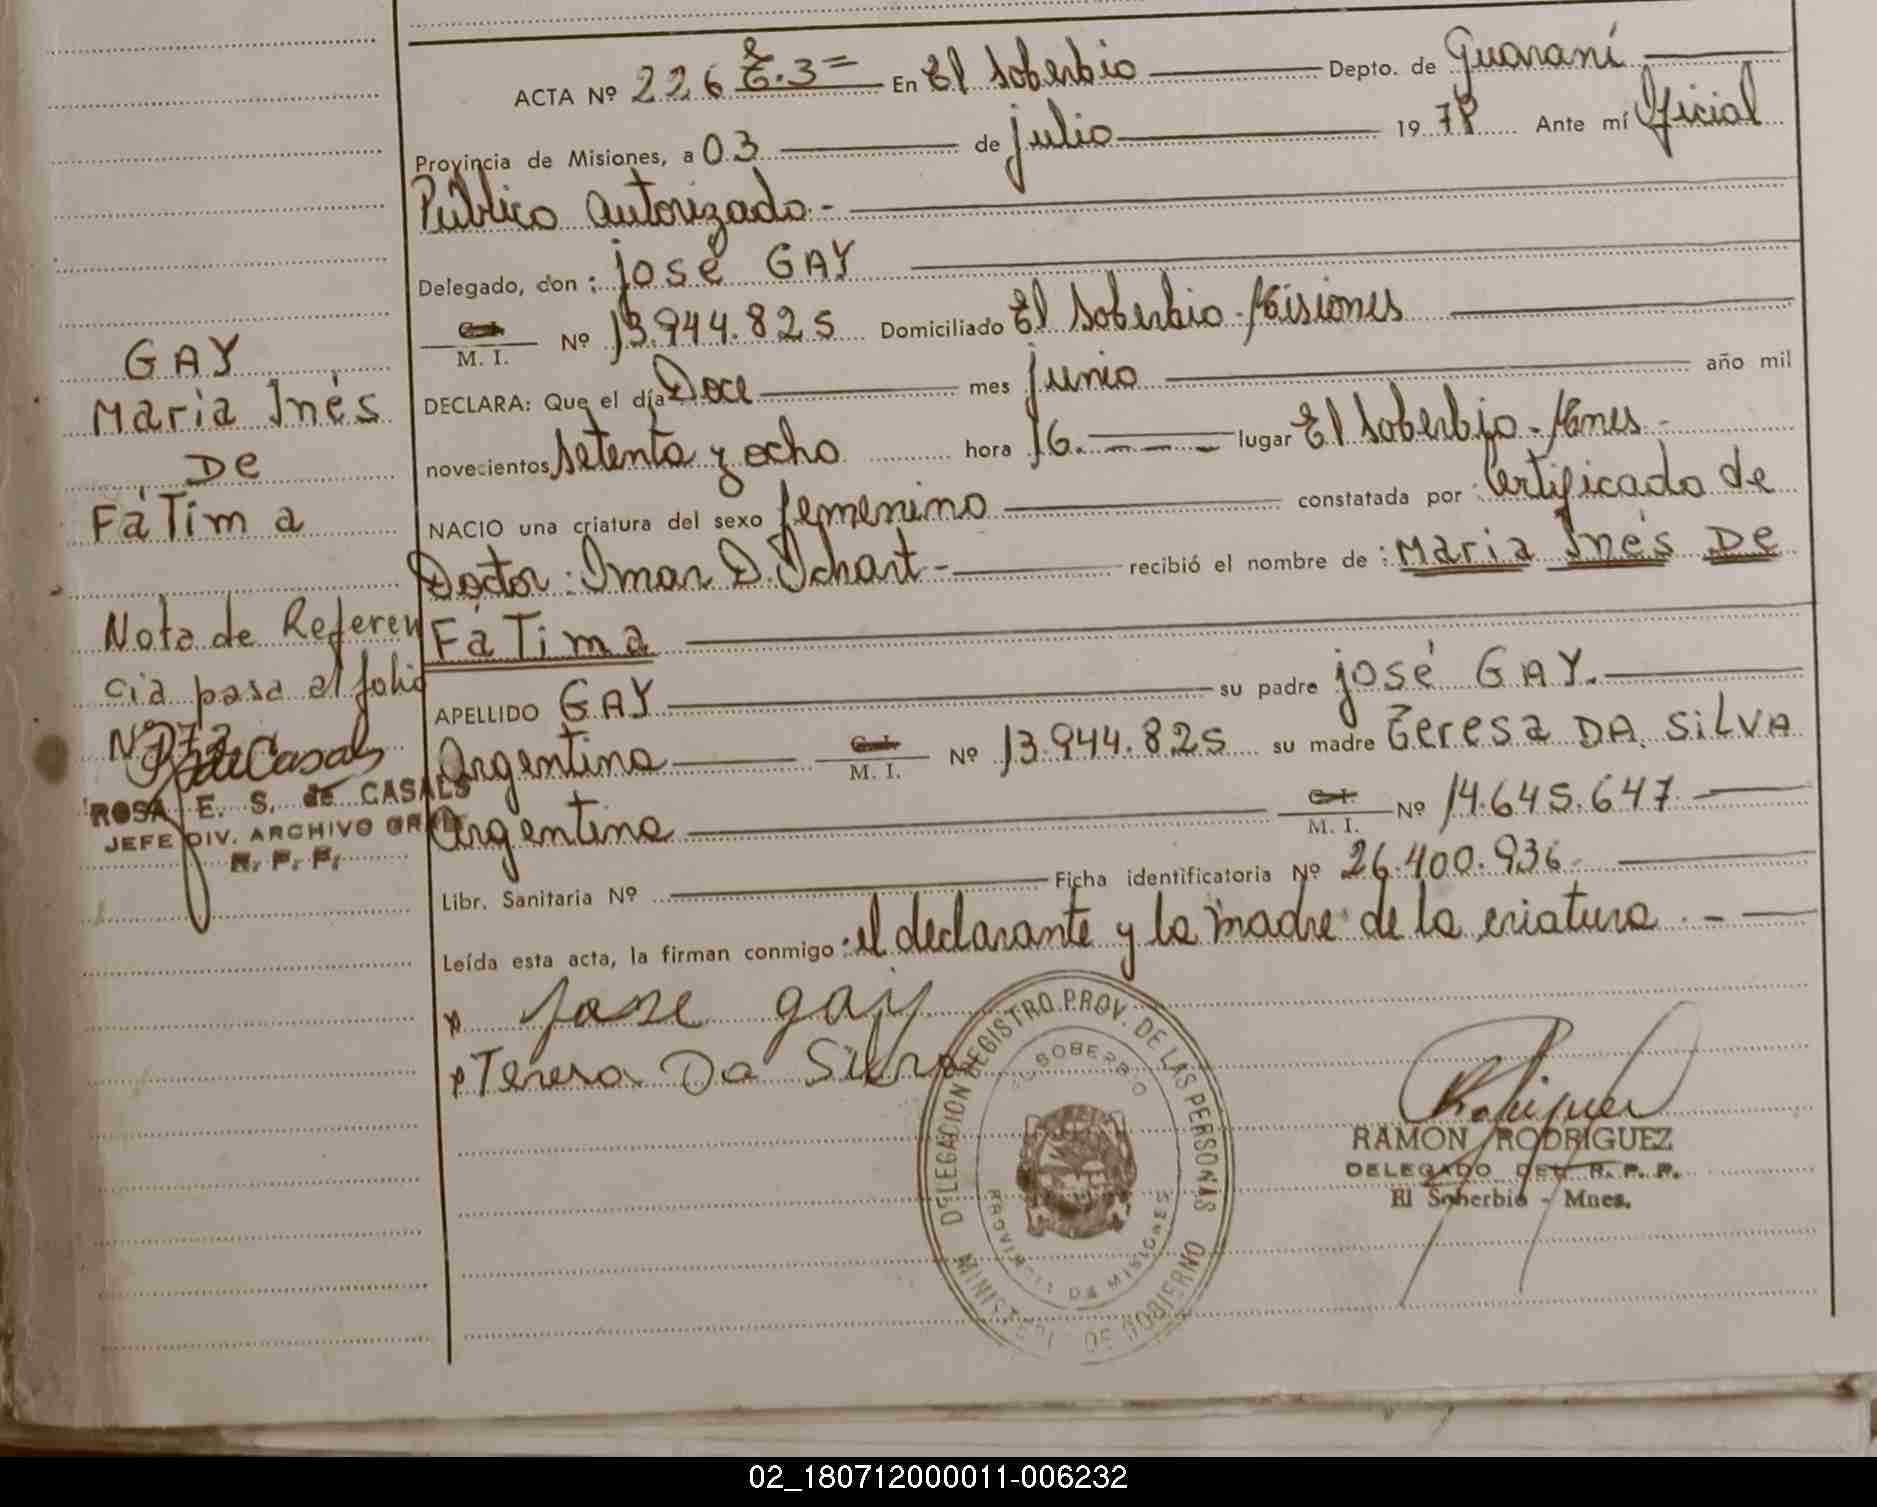 ACTA Nº 226 T.3= En El Soberbio Depto. de Guaraní
Provincia de Misiones, a 03 de julio 1978 Ante mí Oficial
Público autorizado.-
Delegado, don : josé GAY
C.I. M. I. Nº 13.944.825 Domiciliado El Soberbio-Misiones
DECLARA: Que el día Doce mes junio año mil
novecientos setenta y ocho hora 16. lugar El Soberbio-Mnes-
NACIO una criatura del sexo femenino constatada por : Certificado de
Doctor: D. recibió el nombre de : Maria Inés De
FáTima
APELLIDO GAY su padre josé GAY.
Argentino C.I. M. I. Nº 13.944.825 su madre Teresa DA SiLVA
Argentina C.I. M. I. Nº 14.645.647
Libr. Sanitaria Nº Ficha identificatoria Nº 26.400.936
Leída esta acta, la firman conmigo : el declarante y la madre de la criatura .-
Jose gay
Teresa Da Silva
GAY
Maria Inés
De
FáTima
Nota de Referen
cia pasa al folio
Nº
ROSA E. S. de CASALS
JEFE DIV. ARCHIVO GRAL
R. P. P.
DELEGACION REGISTRO PROV. DE LAS PERSONAS
EL SOBERBIO
PROVINCIA DA MISIONES
MINISTERIO DE GOBIERNO
RAMON RODRIGUEZ
DELEGADO DEL R. P. P.
El Soberbio - Mnes.
02_180712000011-006232